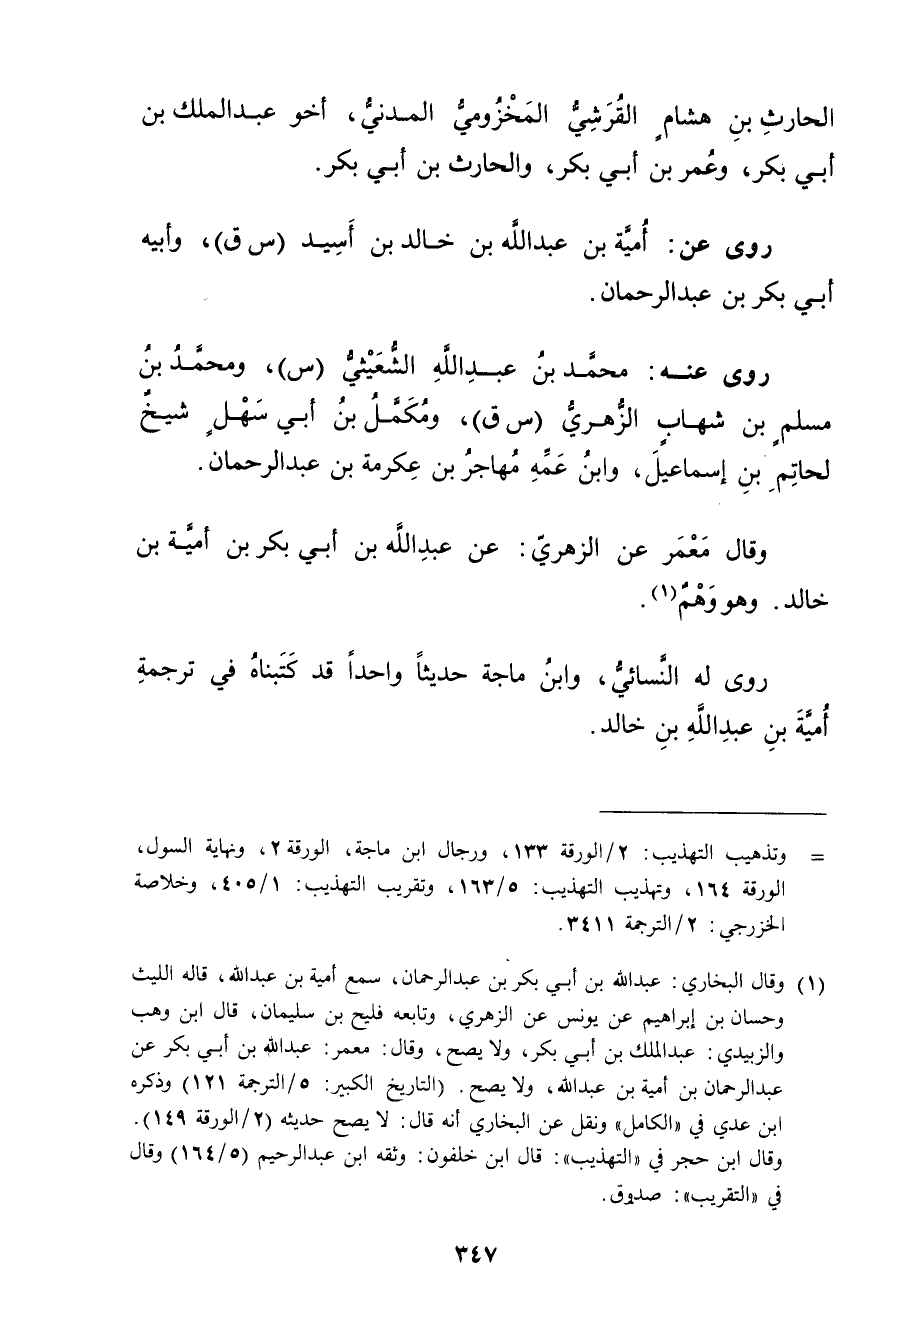 الحارثِ بنِ هشامٍ القُرَشِيُّ المَخْزُوميُّ المـدنيُّ، أخو عبـدالملك بن
أبـي بكر، وعُمر بن أبـي بكر، والحارث بن أبـي بكر.
روى عن: أُميَّة بن عبداللَّه بن خـالد بن أَسِيـد (س ق)، وأبيه
أبـي بكر بن عبدالرحمان.
روى عنـه: محمَّـد بنُ عبـدِاللَّهِ الشُّعَيْثيُّ (س)، ومحمَّـدُ بنُ
مسلمٍ بن شهـابٍ الزُّهـريُّ (س ق)، ومُكَمَّـلُ بنُ أبـي سَهْـلٍ شيـخٌ
لحاتِمِ بنِ إسماعيلَ، وابنُ عَمِّهِ مُهاجرُ بن عِكرمة بن عبدالرحمان.
وقال مَعْمَر عن الزهريّ: عن عبدِاللَّه بن أبـي بكر بن أميَّـة بن
خالد. وهو وَهْمٌ(١).
روى له النَّسائيُّ، وابنُ ماجة حديثاً واحداً قد كَتَبناهُ في ترجمةِ
أُميَّةَ بنِ عبدِاللَّهِ بنِ خالد.
= وتذهيب التهذيب: ٢/الورقة ١٣٣، ورجال ابن ماجة، الورقة ٢، ونهاية السول،
الورقة ١٦٤، وتهذيب التهذيب: ١٦٣/٥، وتقريب التهذيب: ٤٠٥/١، وخلاصة
الخزرجي: ٢/الترجمة ٣٤١١.
(١) وقال البخاري: عبدالله بن أبـي بكر بن عبدالرحمان، سمع أمية بن عبدالله، قاله الليث
وحسان بن إبراهيم عن يونس عن الزهري، وتابعه فليح بن سليمان، قال ابن وهب
والزبيدي: عبدالملك بن أبـي بكر، ولا يصح، وقال: معمر: عبدالله بن أبـي بكر عن
عبدالرحمان بن أمية بن عبدالله، ولا يصح. (التاريخ الكبير: ٥/الترجمة ١٢١) وذكره
ابن عدي في «الكامل» ونقل عن البخاري أنه قال: لا يصح حديثه (٢/الورقة ١٤٩).
وقال ابن حجر في «التهذيب»: قال ابن خلفون: وثقه ابن عبدالرحيم (١٦٤/٥) وقال
في «التقريب»: صدوق.
٣٤٧